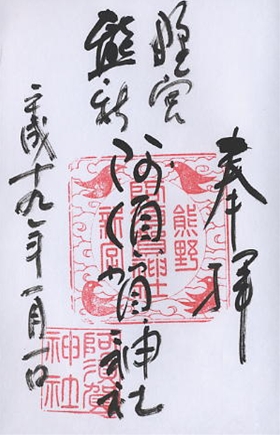 奉拝
熊野
新宮
阿須賀神社
平成十九年一月
熊野
阿須賀神社
新宮
阿須賀
神社